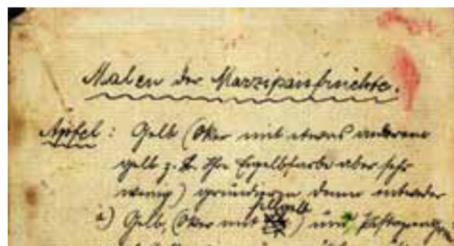 Malen der Marzipanfrüchte.
Äpfel: Gelb (Oker mit etwas anderem
gelb z. B. Eigelbfarbe aber sehr
wenig) grundieren dann entweder
a) Gelb, (Oker mit hellgelb) und